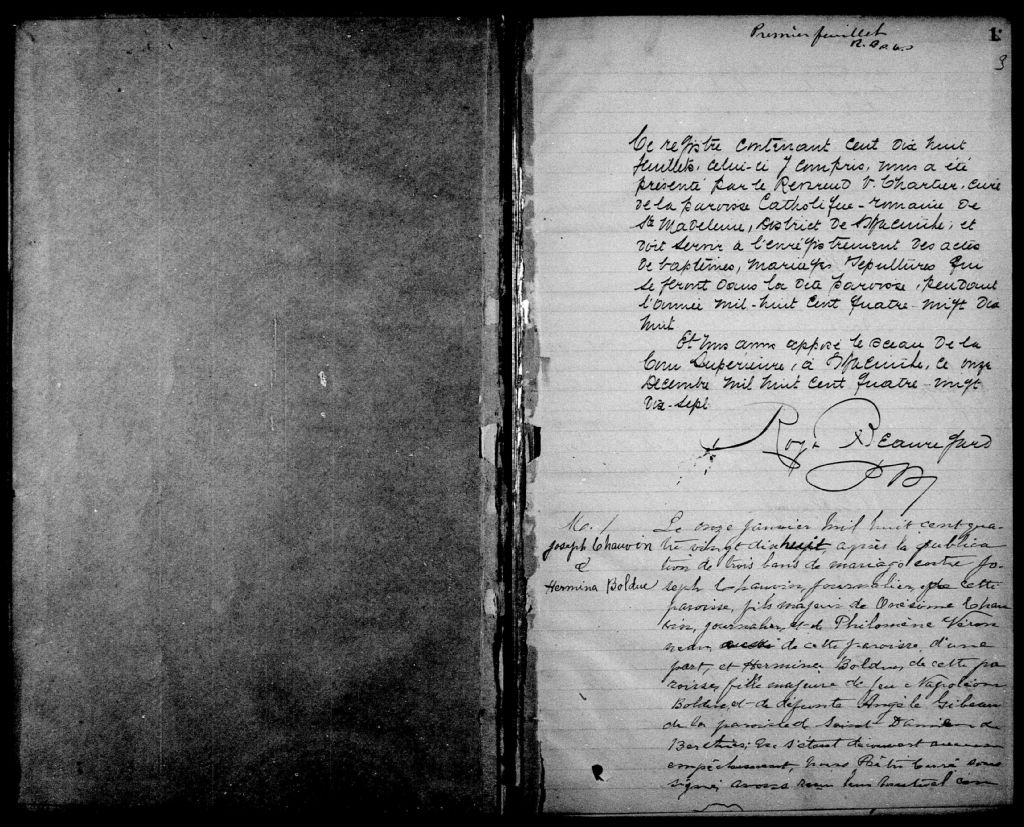 Premier feuillet
1
3
Ce registre contenant cent dix huit
feuillets, celui-ci y compris, nous a été
présenté par le Révérend V. Chartier, curé
de la paroisse Catholique-romaine de
Ste Madeleine, District de St Hyacinthe, et
doit servir à l'enregistrement des actes
de baptêmes, mariages, sépultures qui
se feront dans la dite paroisse, pendant
l'année mil-huit cent quatre-vingt dix
huit
Et nous avons apposé le sceau de la
Cour Supérieure, à St Hyacinthe, ce onze
Décembre mil huit cent quatre-vingt
dix-sept
Roy & Beauregard
M. 1
Joseph Chauvin
&
Hermina Bolduc
Le onze janvier mil huit cent qua-
tre vingt dix huit, après la publica
tion de trois bans de mariage entre Jo-
seph Chauvin, journalier, de cette
paroisse, fils majeur de Onésime Chau
vin, journalier, et de Philomène Véron
neau, aussi de cette paroisse, d'une
part, et Hermina Bolduc, de cette pa
roisse, fille majeure de feu Napoléon
Bolduc, et de défunte Angèle Gibeau
de la paroisse de Saint Damien de
Berthier; ne s'étant découvert aucun
empêchement, nous Prêtre Curé sous
signé, avons reçu leur mutuel con